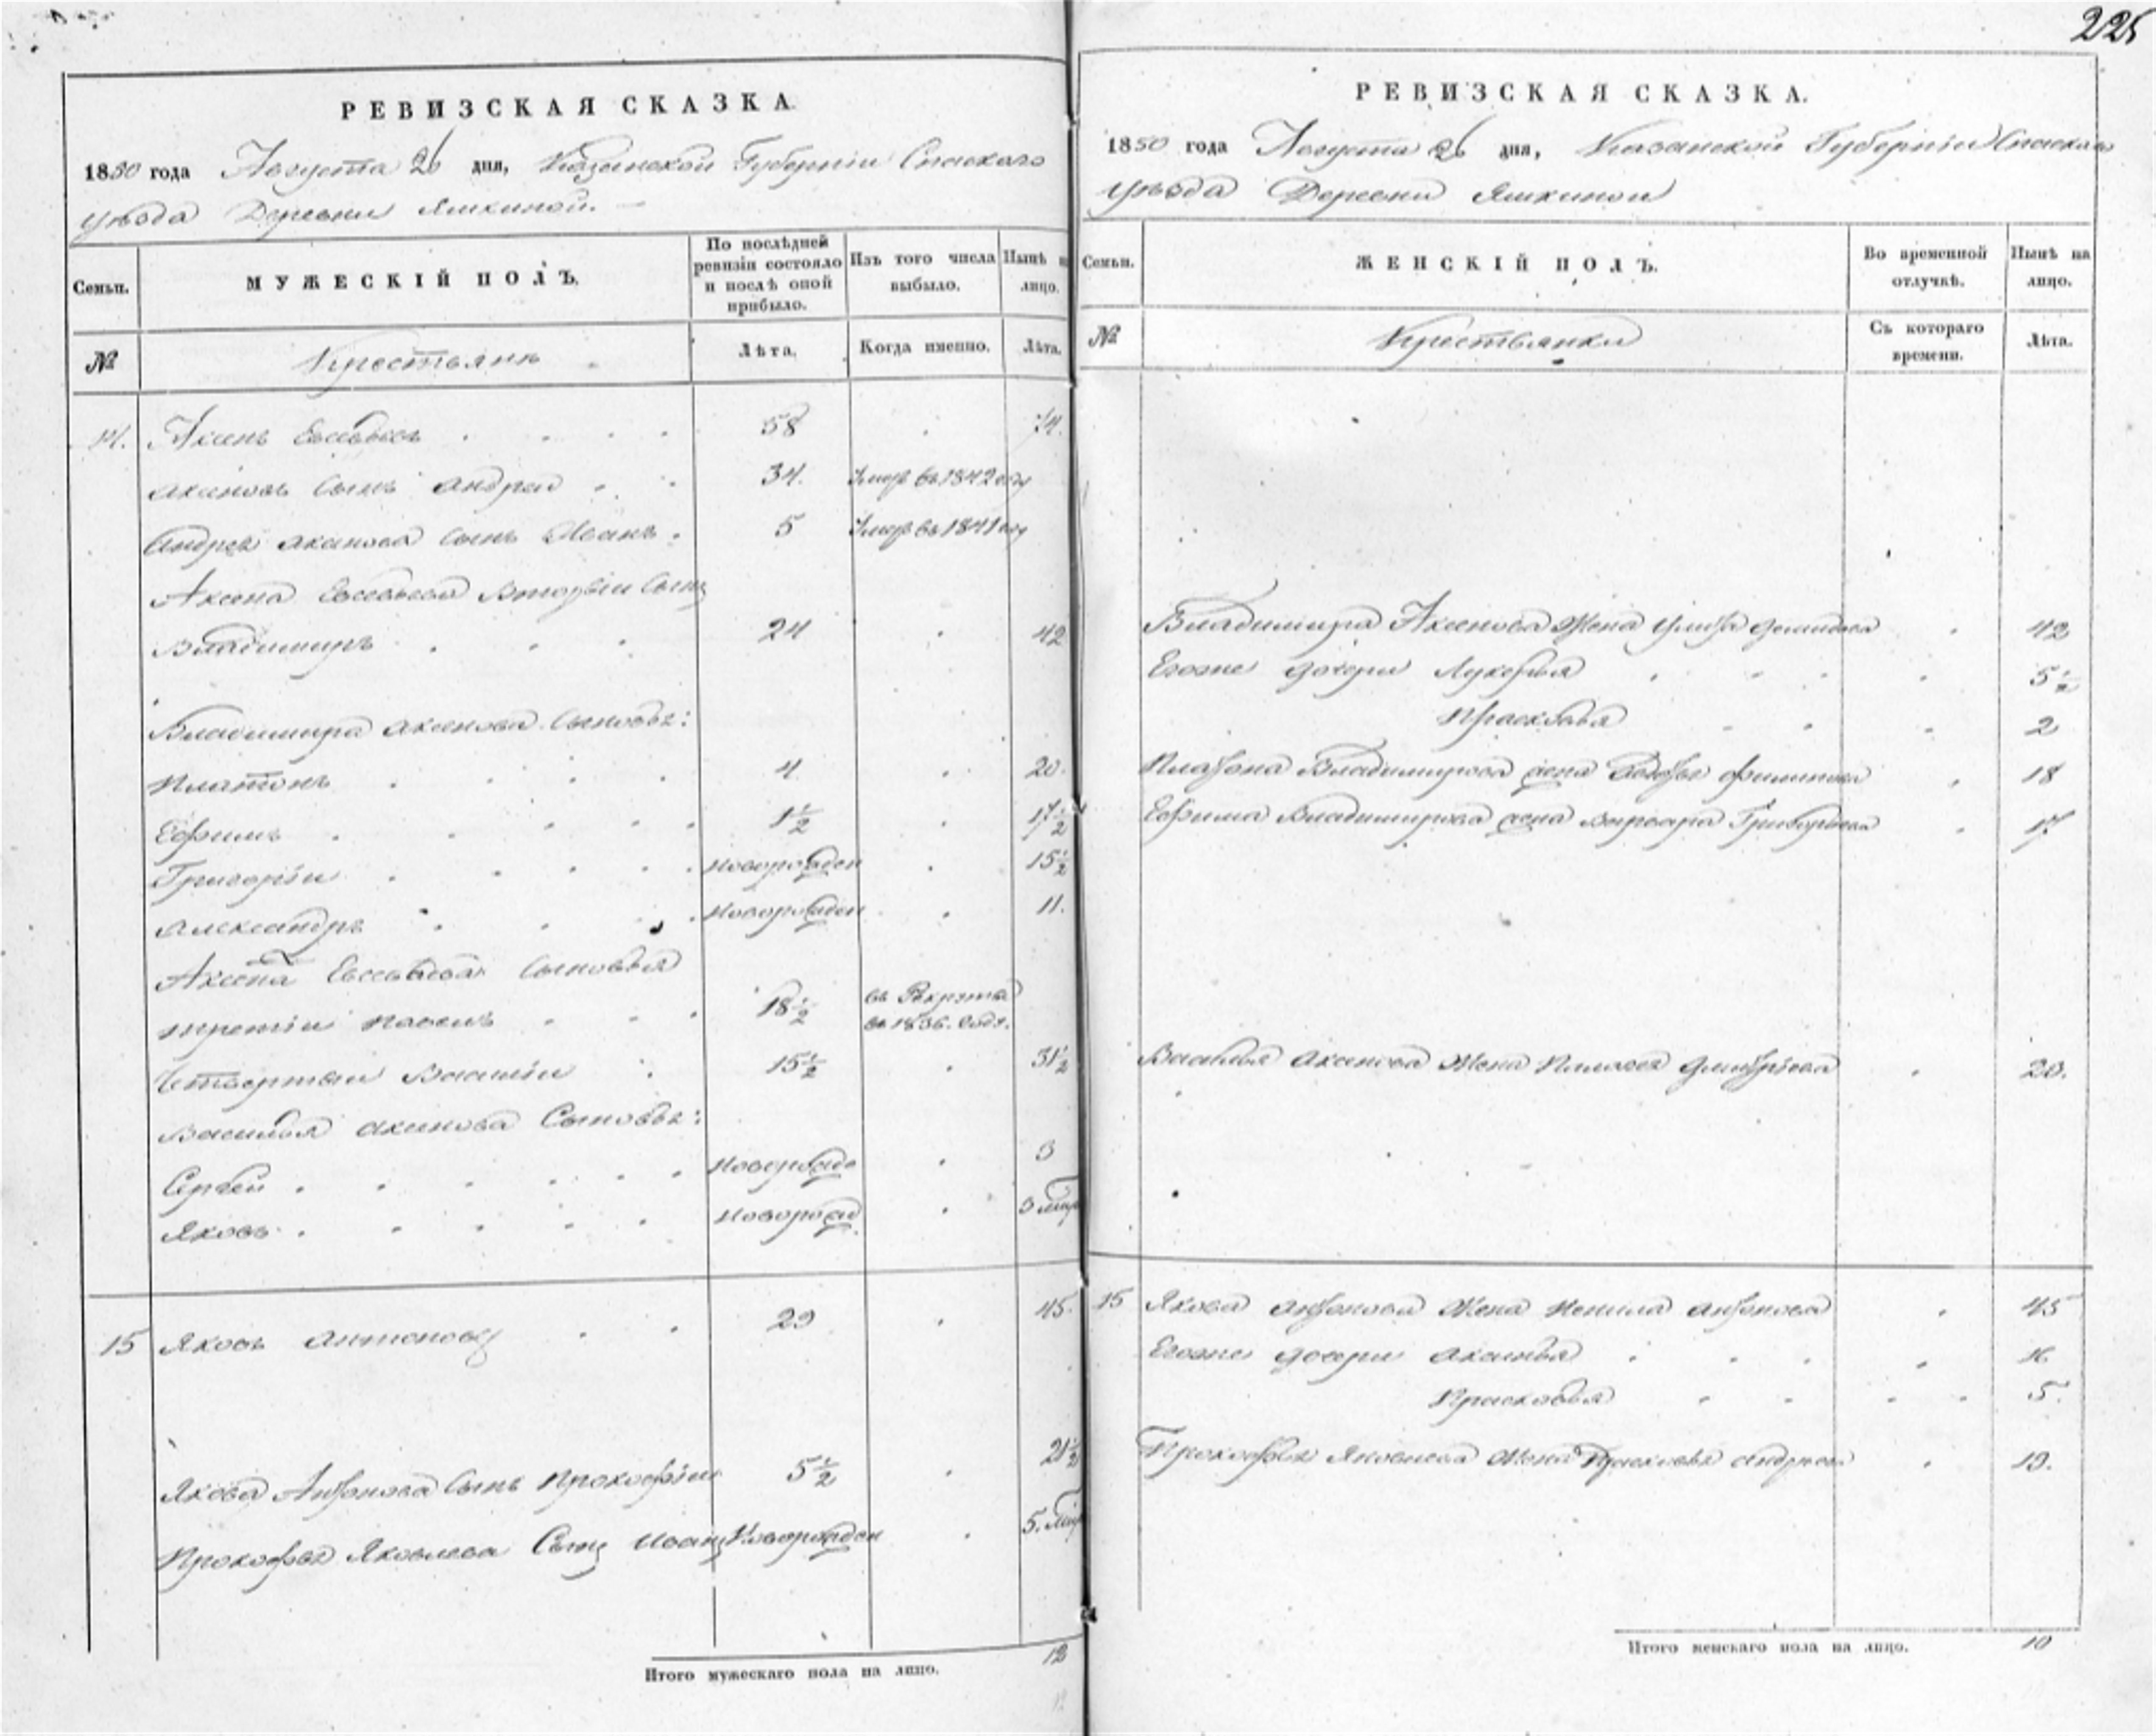 225
РЕВИЗСКАЯ СКАЗКА.
1850 года Августа 26 дня, Казанской Губерніи Спаскаго
уѣзда Деревни Яшкиной.
Семьи. МУЖЕСКІЙ ПОЛЪ. По послѣдней ревизіи состояло и послѣ оной прибыло. Изъ того числа выбыло. Нынѣ на лицо.
№ Крестьянъ Лѣта. Когда именно. Лѣта.
14. Аксенъ Евсѣевъ 58 74.
Аксеновъ Сынъ Андрей 34. Умеръ въ 1842 году
Андрея Аксенова Сынъ Иванъ 5 Умеръ въ 1841 году
Аксена Евсѣева Вторый Сынъ
Владимиръ 24 42
Владимира Аксенова Сыновья:
Платонъ 4 20.
Ефимъ 1½ 17½
Григорій Новорожден 15½
Александръ Новорожден 11.
Аксена Евсѣева Сыновья
третій Павелъ 18½ въ Рекруты въ 1836. годѣ.
Четвертый Василій 15½ 31½
Василья Аксенова Сыновья:
Сергѣй Новорожд 3
Яковъ Новорожд. 3 мѣс
15 Яковъ Антоновъ 29 45.
Якова Антонова Сынъ Прокофій 5½ 21½
Прокофья Яковлева Сынъ Иванъ Новорожден 5. мѣс
Итого мужескаго пола на лицо. 12
РЕВИЗСКАЯ СКАЗКА.
1850 года Августа 26 дня, Казанской Губерніи Спаскаго
уѣзда Деревни Яшкиной
Семьи. ЖЕНСКІЙ ПОЛЪ. Во временной отлучкѣ. Нынѣ на лицо.
№ Крестьянки Съ котораго времени. Лѣта.
Владимира Аксенова Жена 42
Егоже дочери Лукерья 5½
Прасковья 2
Платона Владимирова жена Филипова 18
Ефима Владимирова жена Варвара Григорьева 17
Василья Аксенова Жена Пелагея Дмитріева 20.
15 Якова Антонова Жена Ненила Антонова 45
Егоже дочери Аксинья 16
Прасковья 5.
Прокофья Яковлева Жена Прасковья Андреева 19.
Итого женскаго пола на лицо. 10